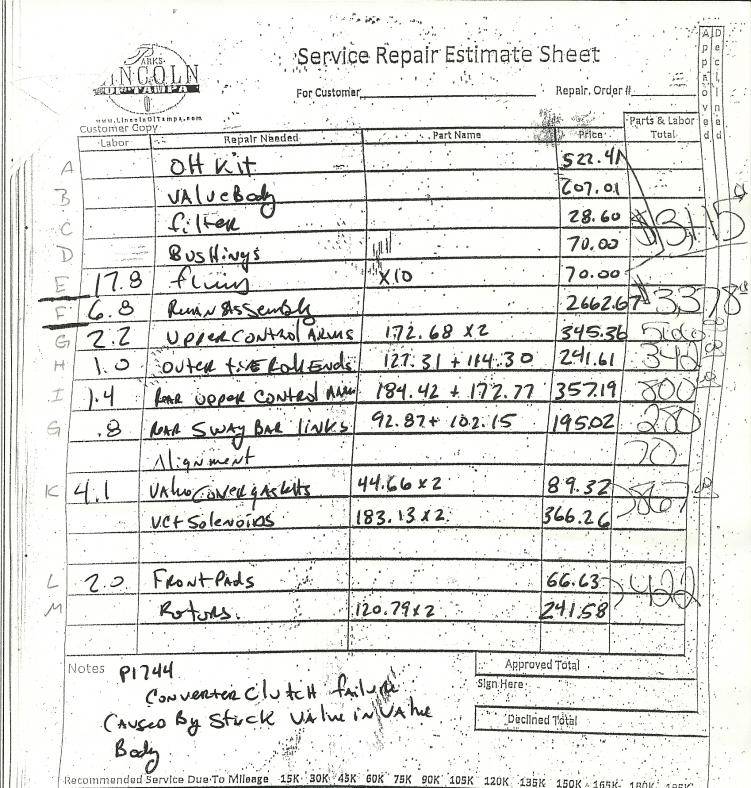 PARKS
LINCOLN
OF TAMPA
www.LincolnOfTampa.com
Service Repair Estimate Sheet
For Customer Repair Order #
Customer Copy
Labor Repair Needed Part Name Price Parts & Labor Total Approved Declined
A OH Kit 522.41
B VALVE Body 607.01
C filter 28.60 $3,115
D Bushings 70.00
E 17.8 fluid X10 70.00
F 6.8 Reman Assembly 2662.67 $3378
G 2.2 UPPER CONTROL ARMS 172.68 x 2 345.36
H 1.0 OUTER TIE ROD ENDS 127.31 + 114.30 241.61 342
I 1.4 REAR UPPER CONTROL ARMS 184.42 + 172.77 357.19 500
G .8 REAR SWAY BAR LINKS 92.87 + 102.15 195.02 280
Alignment 70
K 4.1 Valve Cover gaskets 44.66 x 2 89.32 867
VCT Solenoids 183.13 x 2 366.26
L 2.0 FRONT PADS 66.63 422
M Rotors. 120.79 x 2 241.58
Notes P1744
CONVERTER CLUTCH failure
CAUSED BY STUCK VALVE IN VALVE
Body
Approved Total
Sign Here
Declined Total
Recommended Service Due To Mileage 15K 30K 45K 60K 75K 90K 105K 120K 135K 150K 165K 180K 195K